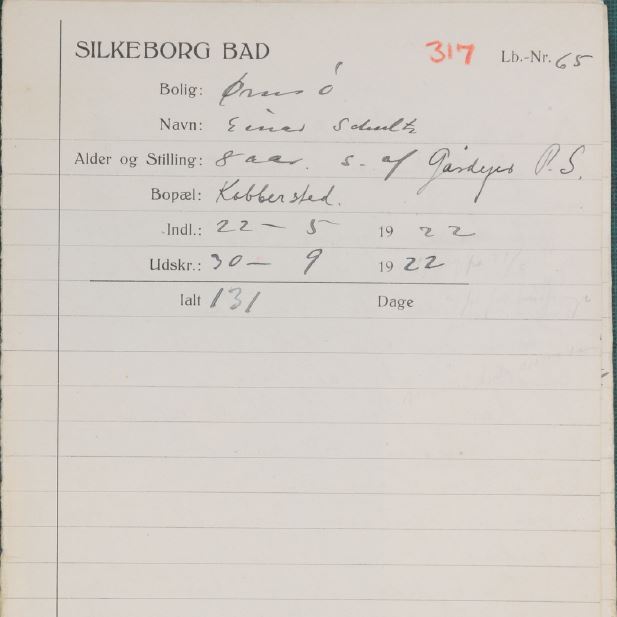 SILKEBORG BAD 317 Lb.-Nr. 65
Bolig: Ørnsö
Navn: Einar Schultz
Alder og Stilling: 8 aar. s. af Gårdejer P.S.
Bopæl: Kobbersted.
Indl.: 22 - 5 1922
Udskr.: 30 - 9 1922
Ialt 131 Dage